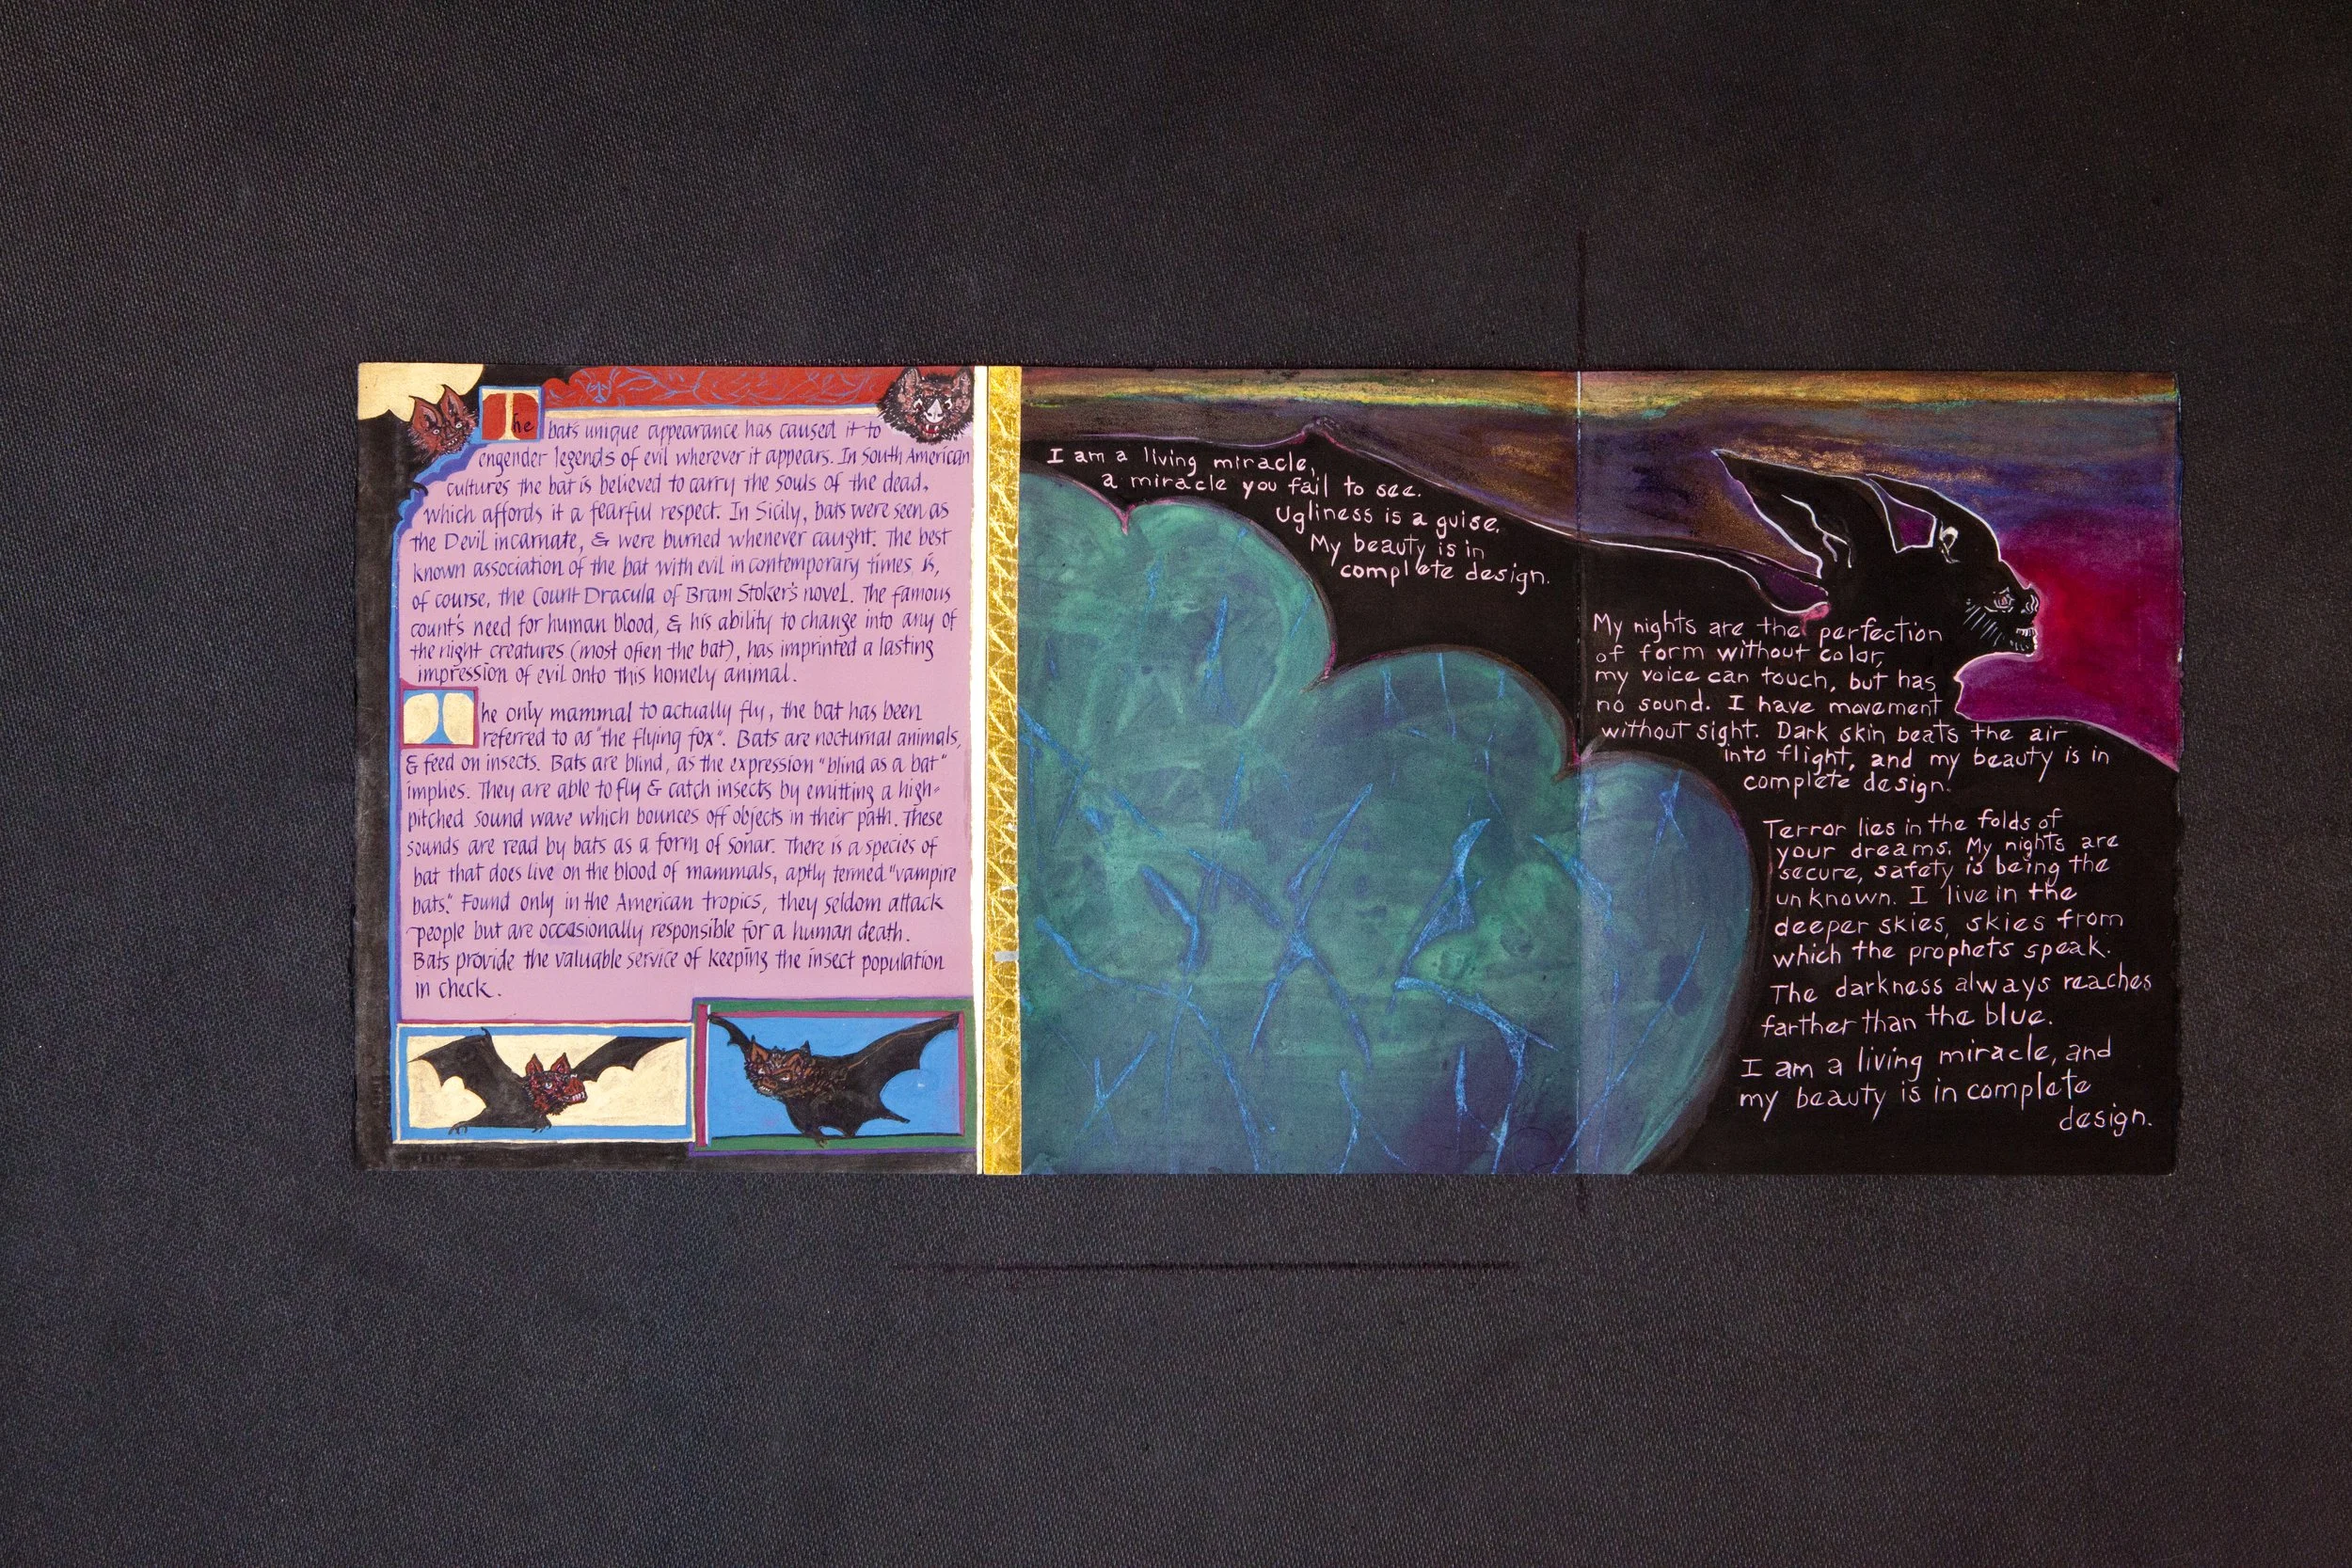 The bat's unique appearance has caused it to
engender legends of evil wherever it appears. In South American
cultures the bat is believed to carry the souls of the dead,
which affords it a fearful respect. In Sicily, bats were seen as
the Devil incarnate, & were burned whenever caught. The best
known association of the bat with evil in contemporary times, is,
of course, the Count Dracula of Bram Stoker's novel. The famous
count's need for human blood, & his ability to change into any of
the night creatures (most often the bat), has imprinted a lasting
impression of evil onto this homely animal.
The only mammal to actually fly, the bat has been
referred to as "the flying fox". Bats are nocturnal animals,
& feed on insects. Bats are blind, as the expression "blind as a bat"
implies. They are able to fly & catch insects by emitting a high-
pitched sound wave which bounces off objects in their path. These
sounds are read by bats as a form of sonar. There is a species of
bat that does live on the blood of mammals, aptly termed "vampire
bats." Found only in the American tropics, they seldom attack
people but are occasionally responsible for a human death.
Bats provide the valuable service of keeping the insect population
in check.
I am a living miracle,
a miracle you fail to see.
Ugliness is a guise.
My beauty is in
complete design.
My nights are the perfection
of form without color,
my voice can touch, but has
no sound. I have movement
without sight. Dark skin beats the air
into flight, and my beauty is in
complete design.
Terror lies in the folds of
your dreams. My nights are
secure, safety is being the
unknown. I live in the
deeper skies, skies from
which the prophets speak.
The darkness always reaches
farther than the blue.
I am a living miracle, and
my beauty is in complete
design.